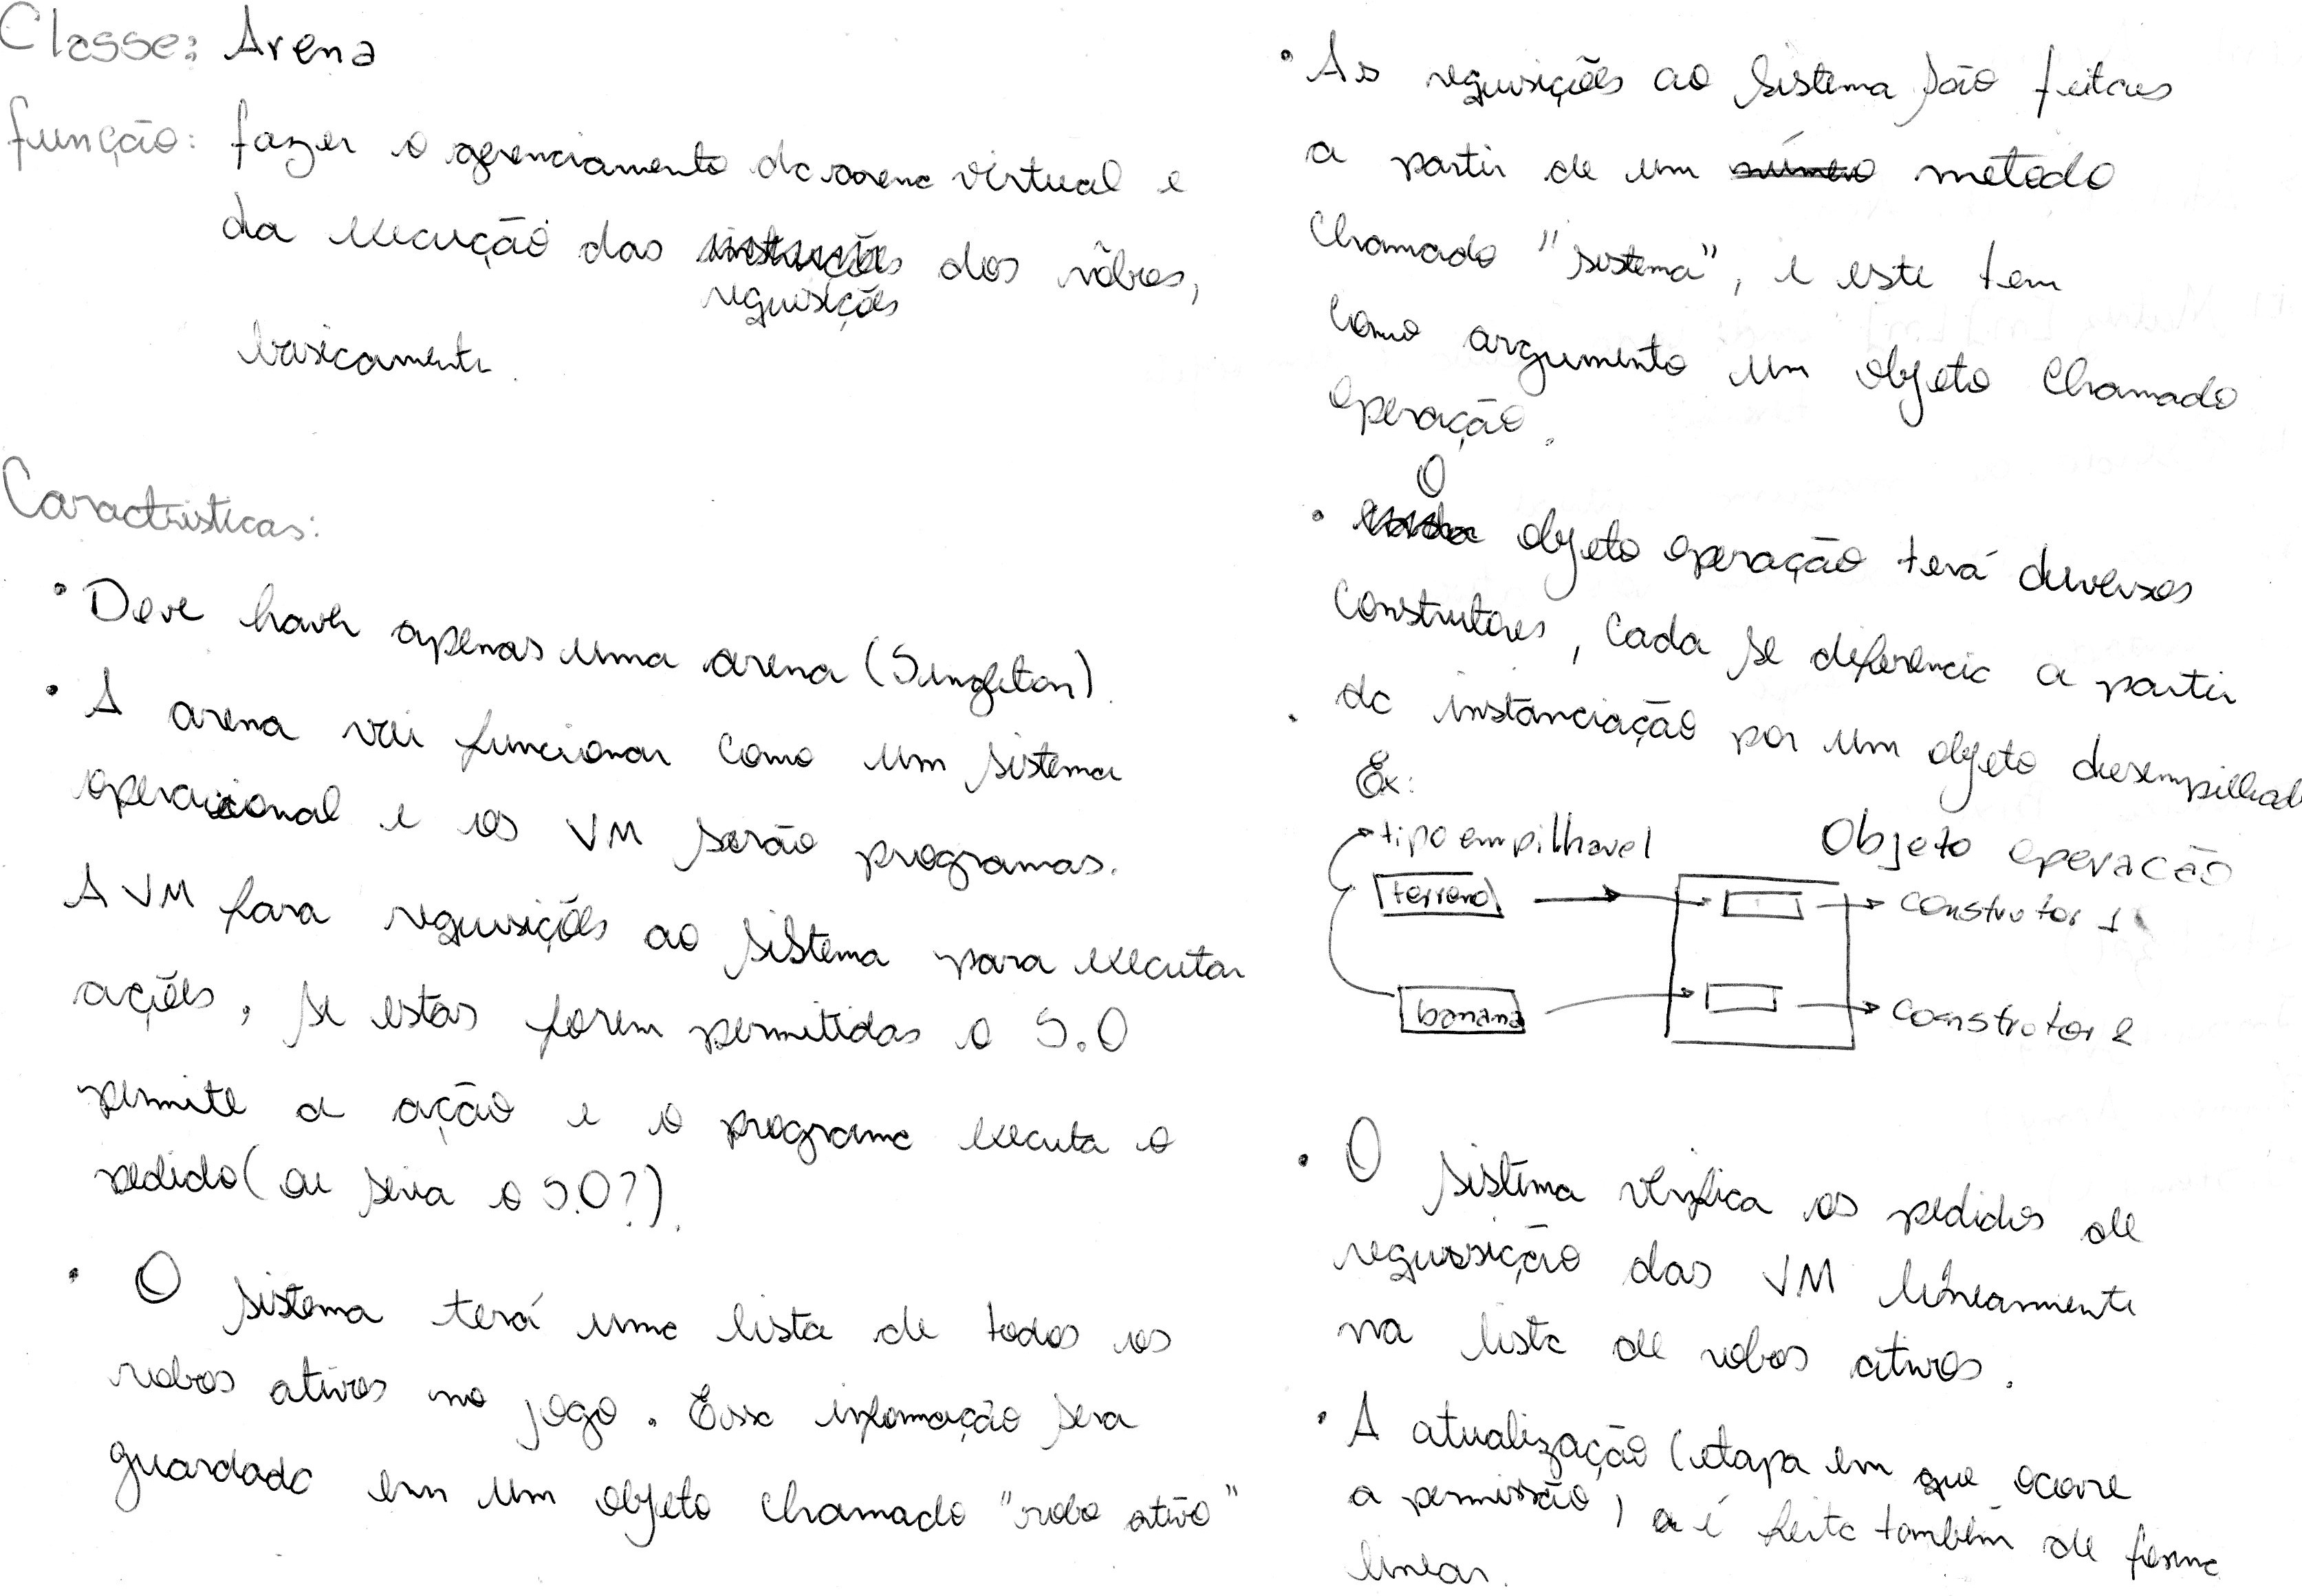 Classe: Arena
função: fazer o gerenciamento da arena virtual e
da execução das instruções dos rôbos,
requisições
basicamente.
Caracteristicas:
• Deve haver apenas uma arena (Singleton).
• A arena vai funcionar como um sistema
operacional e os VM serão programas.
A VM fara requisições ao sistema para executar
ações, se estas forem permitidas o S.O
permite a ação e o programa executa o
pedido (ou seria o S.O?).
• O sistema terá uma lista de todos os
robos ativos no jogo. Essa informação sera
guardada em um objeto chamado "robo ativo"
• As requisições ao sistema são feitas
a partir de um método
chamado "sistema", e este tem
como argumento um objeto chamado
operação.
O
• cada objeto operação terá diversos
construtores, cada se diferencia a partir
da instanciação por um objeto desempilhad
Ex:
tipo empilhavel
Objeto operação
terreno
construtor 1
banana
construtor 2
• O sistema verifica os pedidos de
requisição das VM linearmente
na lista de robos ativos.
• A atualização (etapa em que ocorre
a permissão) é feita também de forma
linear.